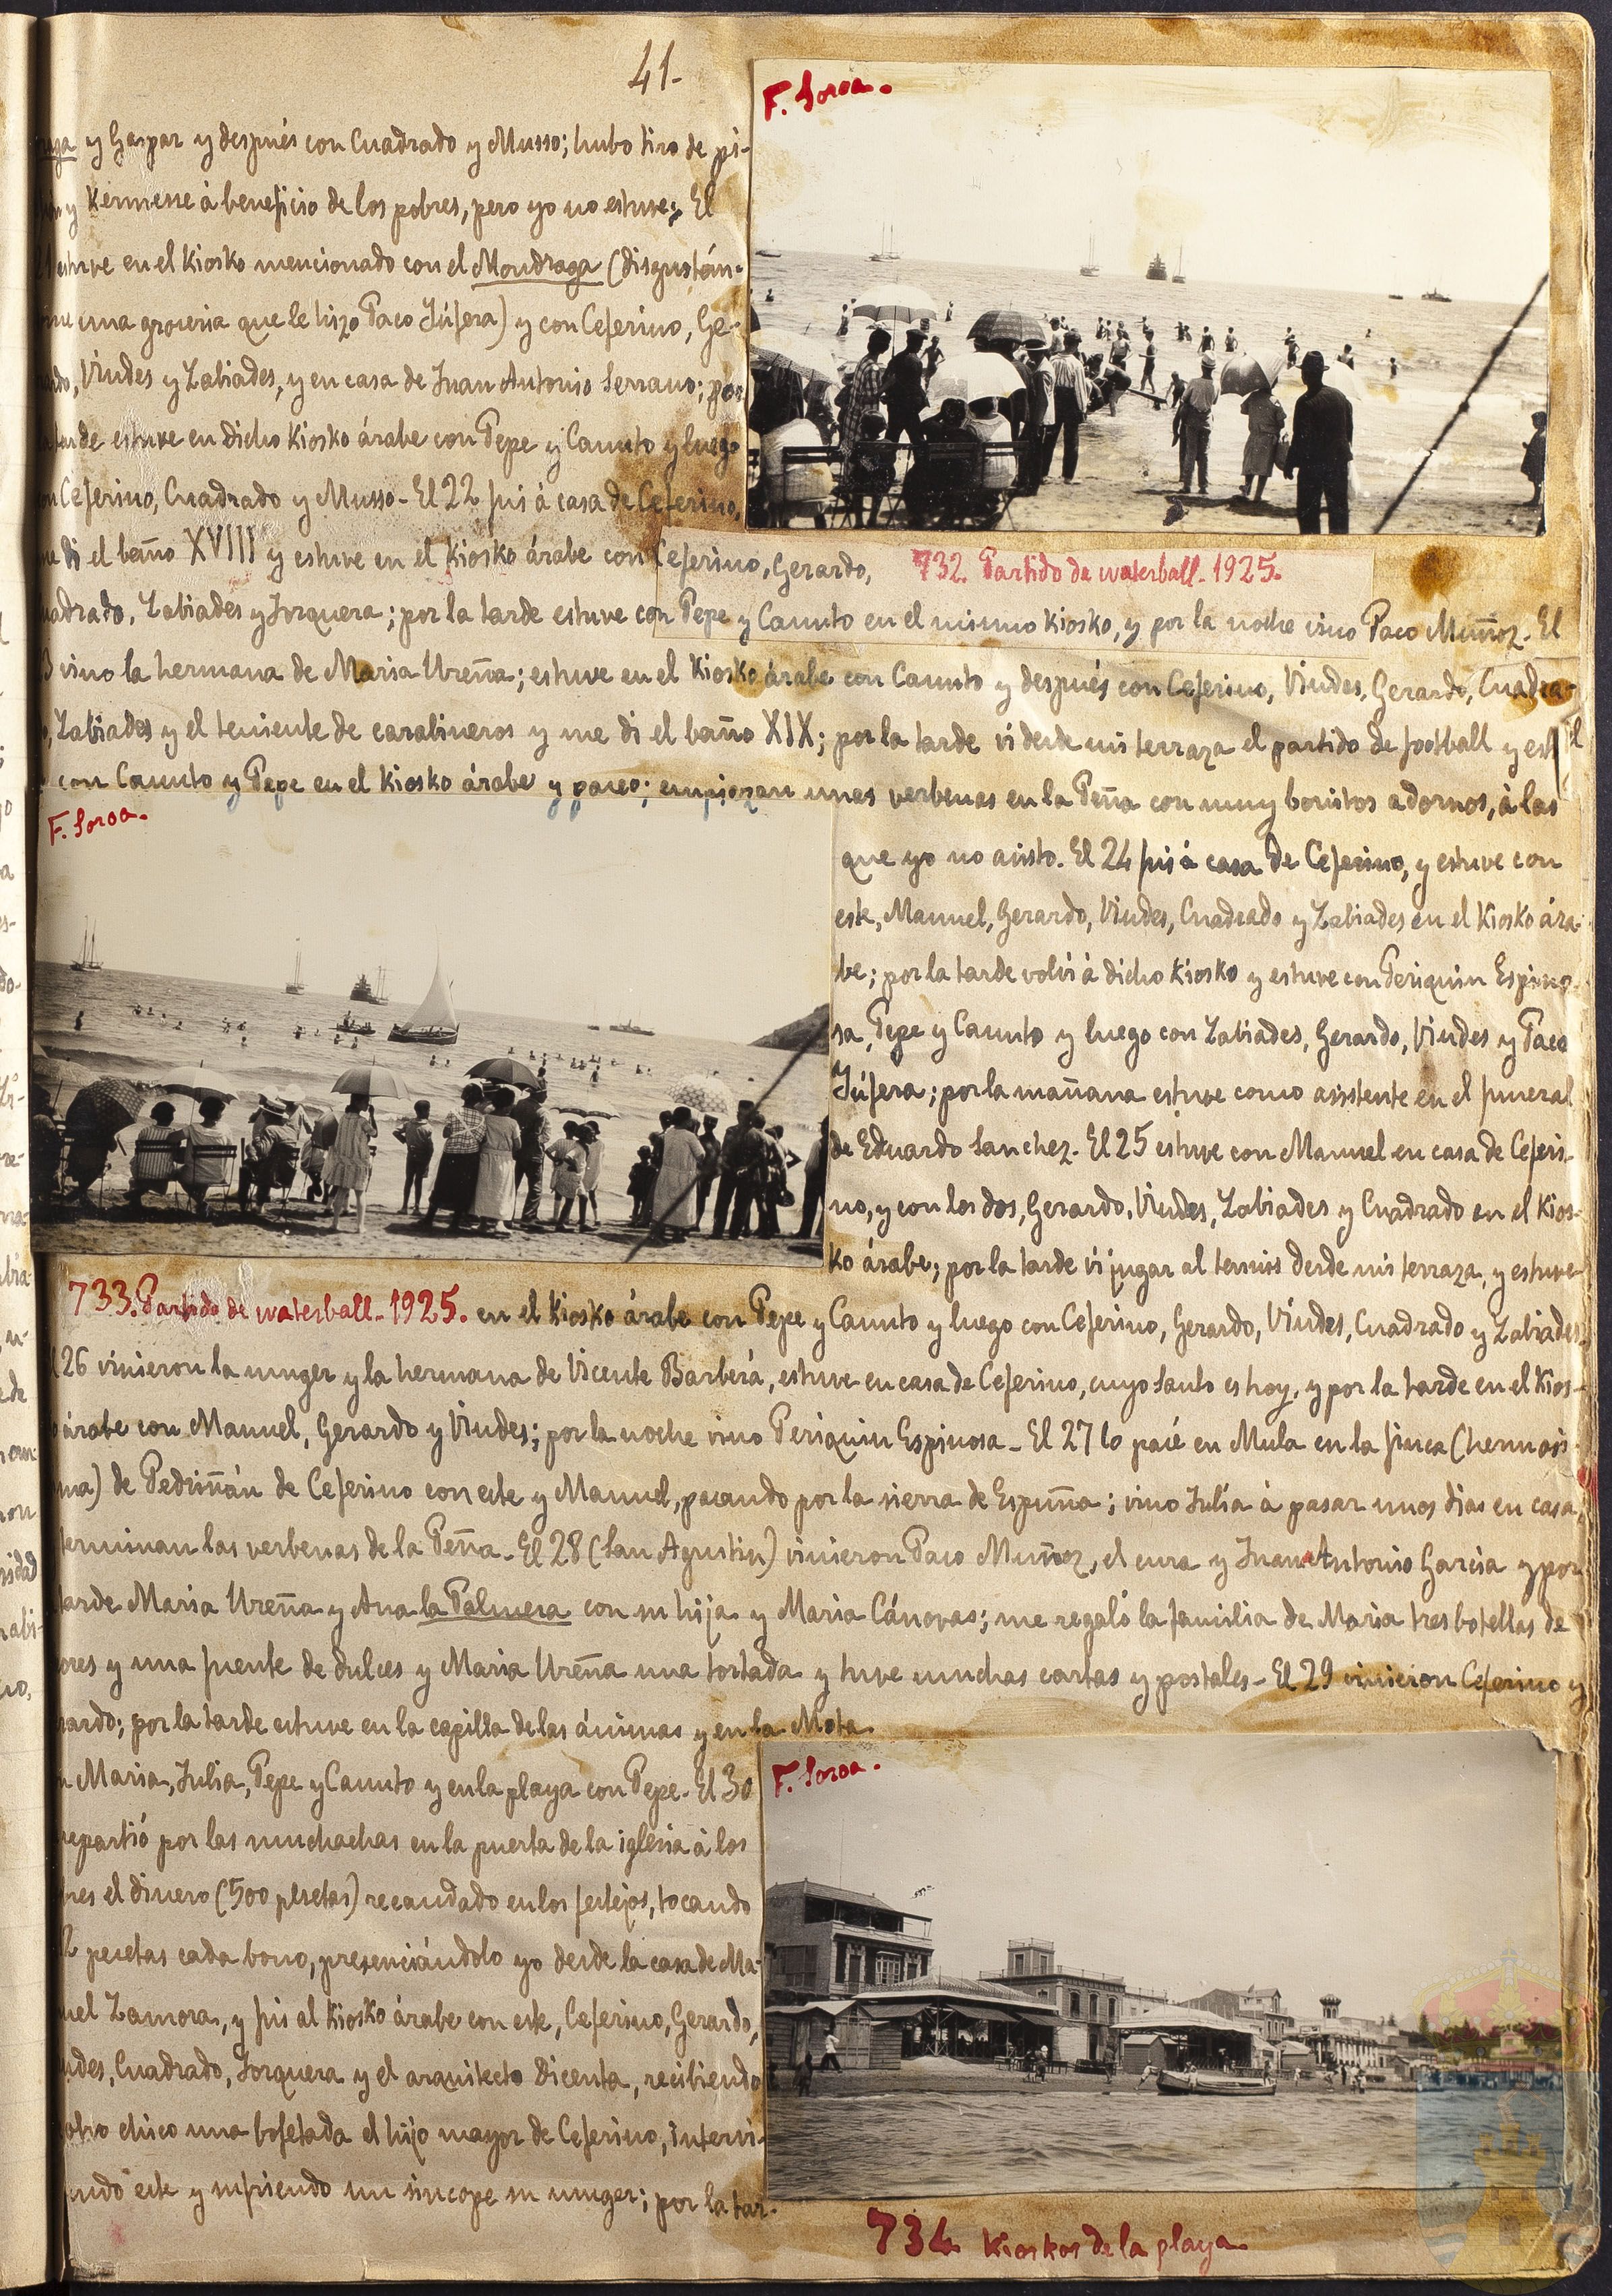 41-
F. Soroa.
y Gaspar y después con Cuadrado y Musso; hubo tiro de pi-
y Kermesse à beneficio de los pobres, pero yo no estuve; El
estuve en el Kiosko mencionado con el Mondraga (disgustán-
una groseria que le hizo Paco Júfera) y con Ceferino, Ge-
Viudes y Zabiades, y en casa de Juan Antonio Serrano; por
tarde estuve en dicho Kiosko árabe con Pepe y Canuto y luego
Ceferino, Cuadrado y Musso - El 22 fui à casa de Ceferino,
di el baño XVIII y estuve en el Kiosko árabe con Ceferino, Gerardo,
732. Partido de waterball. 1925.
Zabiades y Jorquera; por la tarde estuve con Pepe y Canuto en el mismo Kiosko, y por la noche vino Paco Muñoz. El
vino la hermana de Maria Ureña; estuve en el Kiosko árabe con Canuto y después con Ceferino, Viudes, Gerardo, Cuadra-
Zabiades y el teniente de carabineros y me di el baño XIX; por la tarde vi desde mi terraza el partido de football y
con Canuto y Pepe en el Kiosko árabe y paseo; empiezan unas verbenas en la Peña con muy bonitos adornos, à las
F. Soroa.
que yo no asisto. El 24 fui à casa de Ceferino, y estuve con
este, Manuel, Gerardo, Viudes, Cuadrado y Zabiades en el Kiosko ára-
be; por la tarde volvi à dicho Kiosko y estuve con Periquin Espino-
sa, Pepe y Canuto y luego con Zabiades, Gerardo, Viudes y Paco
Júfera; por la mañana estuve como asistente en el funeral
de Eduardo Sanchez. El 25 estuve con Manuel en casa de Ceferi-
no, y con los dos, Gerardo, Viudes, Zabiades y Cuadrado en el Kios-
ko árabe; por la tarde vi jugar al tennis desde mi terraza, y estuve
733. Partido de waterball. 1925.
en el Kiosko árabe con Pepe y Canuto y luego con Ceferino, Gerardo, Viudes, Cuadrado y Zabiades.
26 vinieron la muger y la hermana de Vicente Barberá, estuve en casa de Ceferino, cuyo santo es hoy, y por la tarde en el Kios-
árabe con Manuel, Gerardo y Viudes; por la noche vino Periquin Espinosa - El 27 lo pasé en Mula en la finca (hermosi-
ma) de Pedriñán de Ceferino con este y Manuel, pasando por la sierra de Espuña; vino Julia à pasar unos dias en casa;
terminan las verbenas de la Peña. El 28 (San Agustin) vinieron Paco Muñoz, el cura y Juan Antonio Garcia y por
tarde Maria Ureña y Ana la Palmera con su hija y Maria Cánovas; me regaló la familia de Maria tres botellas de
y una fuente de dulces y Maria Ureña una tortada y tuve muchas cartas y postales - El 29 vinieron Ceferino y
por la tarde estuve en la capilla de las ánimas y en la Mota
Maria, Julia, Pepe y Canuto y en la playa con Pepe. El 30
repartió por las muchachas en la puerta de la iglesia à los
el dinero (500 pesetas) recaudado en los festejos, tocando
pesetas cada bono, presenciándolo yo desde la casa de Ma-
nuel Zamora, y fui al Kiosko árabe con este, Ceferino, Gerardo,
Cuadrado, Jorquera y el arquitecto Dicenta, recibiendo
otro chico una bofetada el hijo mayor de Ceferino, intervi-
este y sufriendo un sincope su muger; por la tar-
F. Soroa.
734 Kioskos de la playa